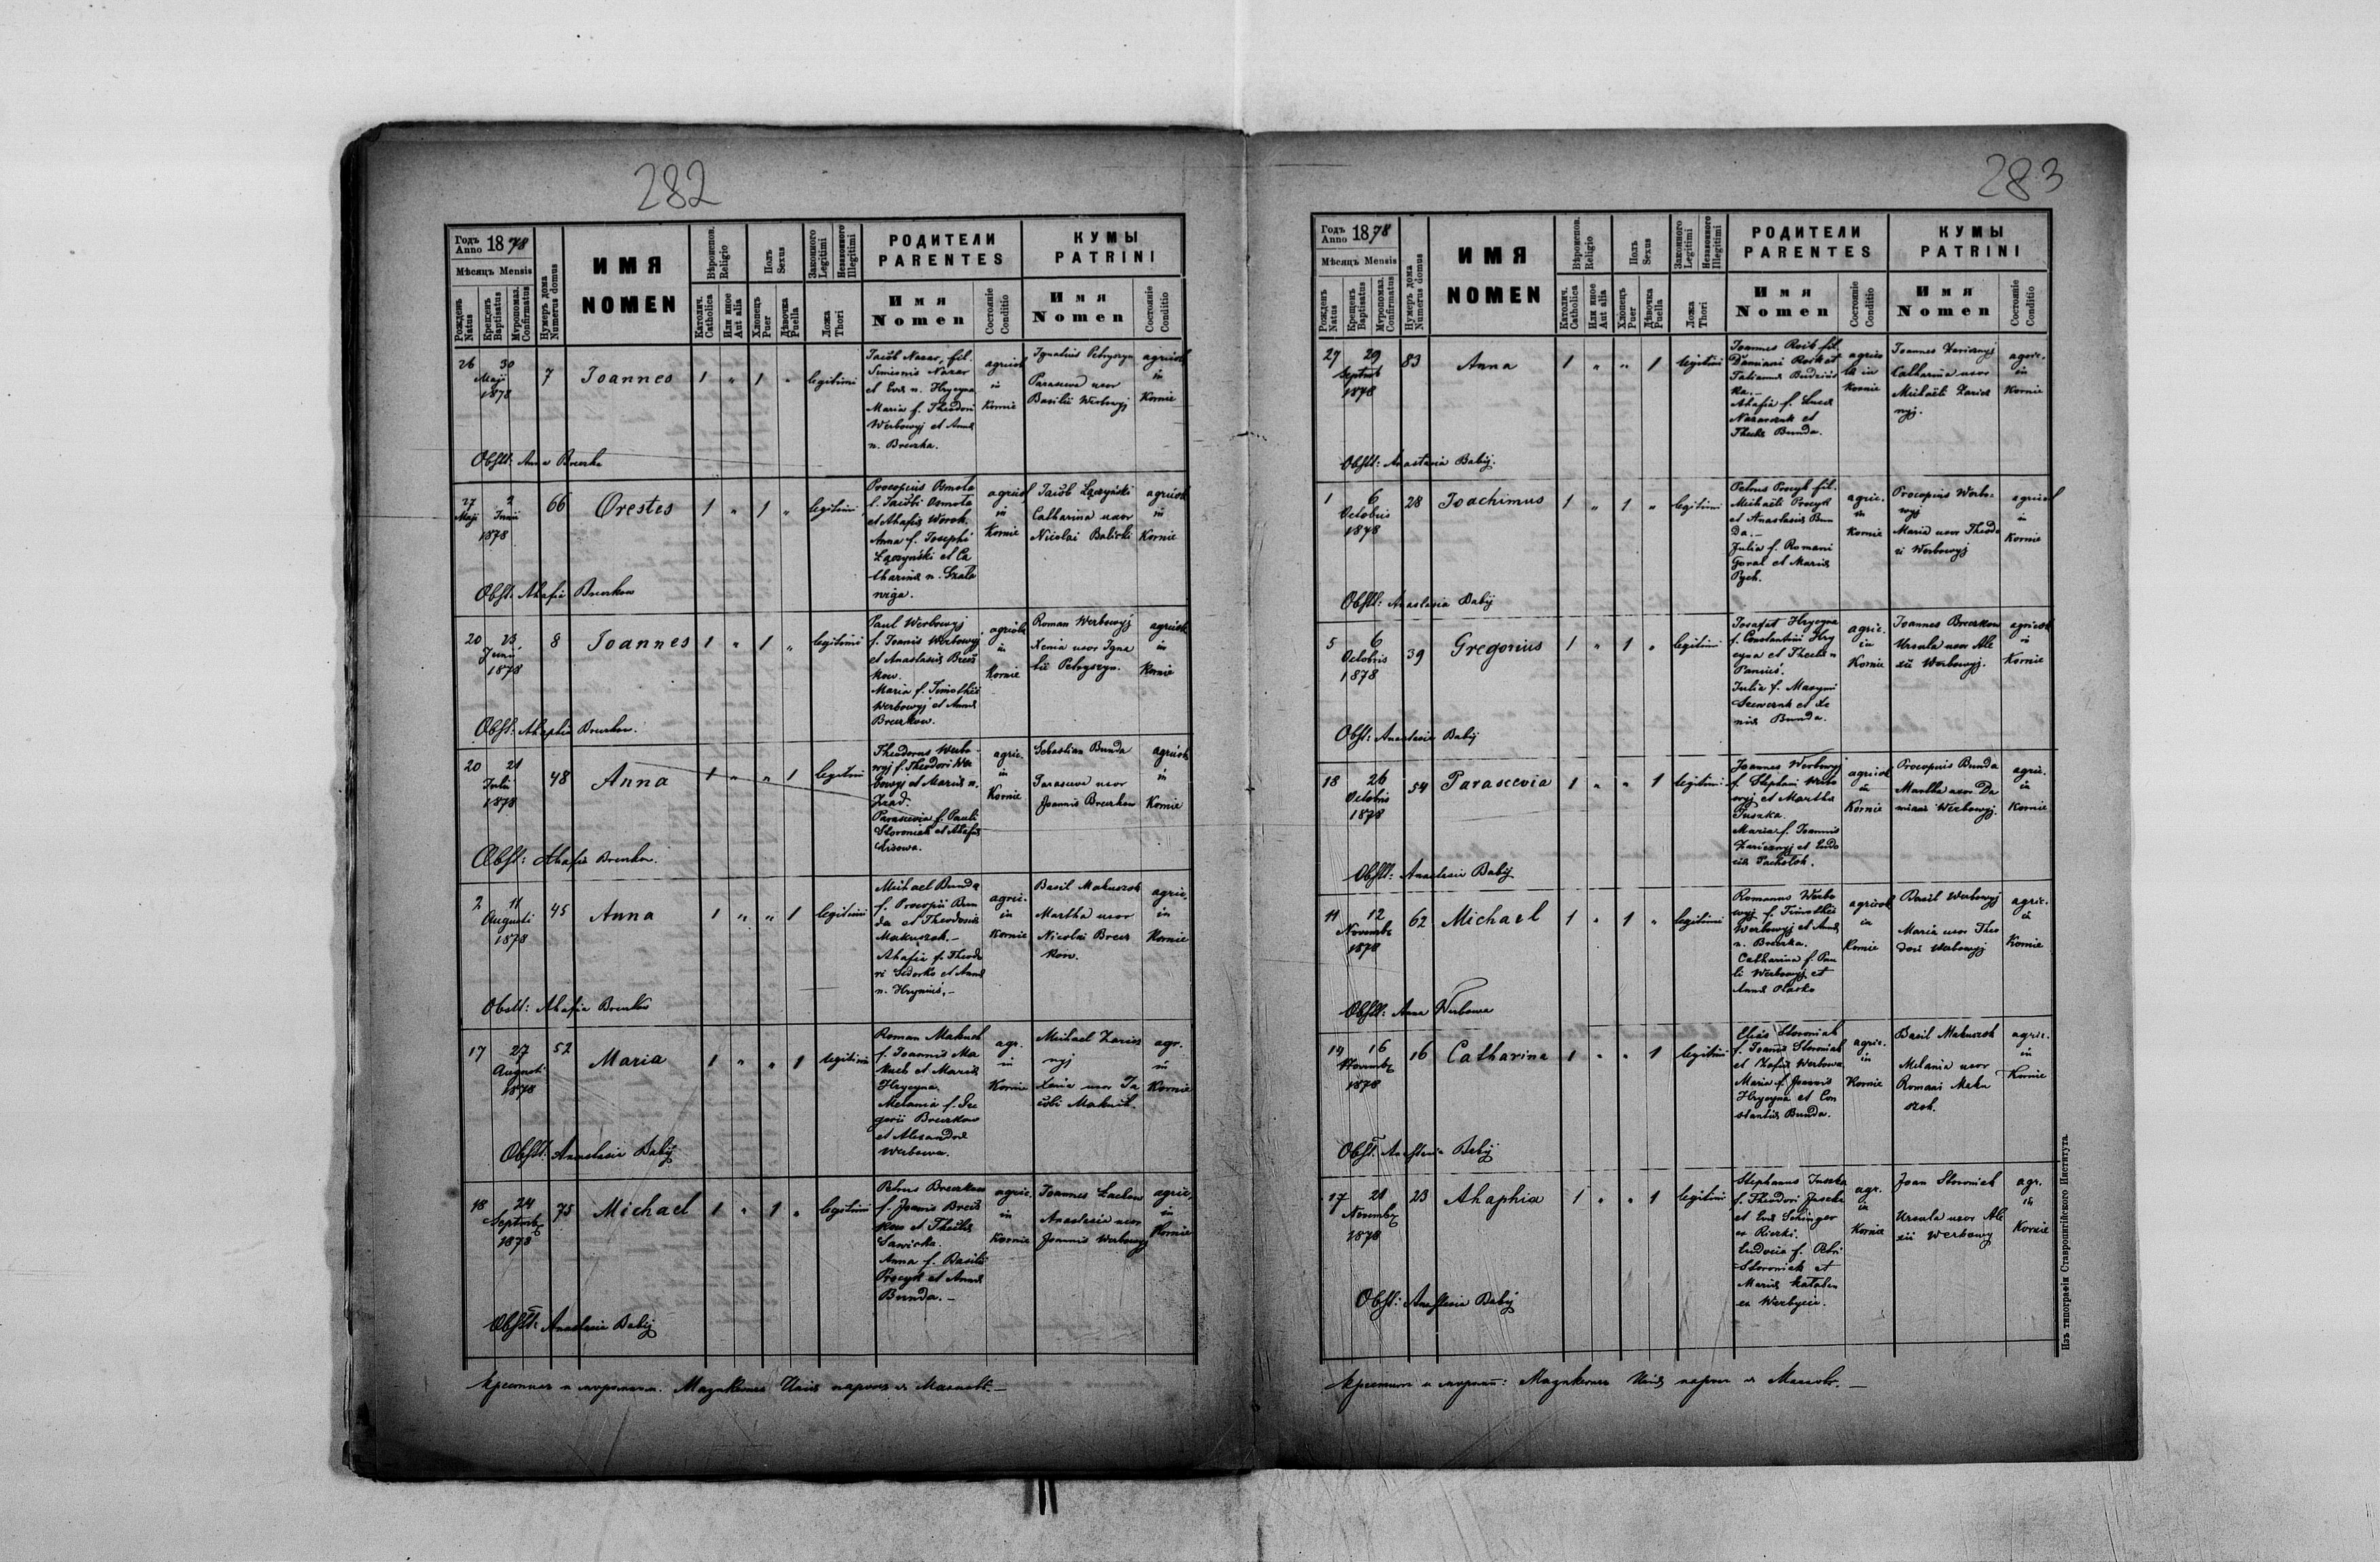 282
Годъ Anno 1878
Мѣсяцъ Mensis
Рожденъ Natus
Крещенъ Baptisatus
Мѵропомаз. Confirmatus
Нумеръ дома Numerus domus
ИМЯ
NOMEN
Вѣроисповѣд. Religio
Католич. Catholica
Или иное Aut alia
Полъ Sexus
Хлопець Puer
Дѣвочка Puella
Законного Legitimi
Незаконного Illegitimi
Ложа Thori
РОДИТЕЛИ
PARENTES
Имя
Nomen
Состояніе Conditio
КУМЫ
PATRINI
Имя
Nomen
Состояніе Conditio
26 30 Maji 1878
7
Joannes
1 " 1 "
legitimi
Jacob Nazar, fil.
Simionis Nazar
et Evæ n. Hrycyna
Maria f. Theodori
Werbowyj et Annæ
n. Breczka.
agricol in Kornie
Ignatius Petryszyn
Parasceva uxor
Basilii Werbowyj
agricol in Kornie
Obst: Anna Breczko
27 Maji 2 Junii 1878
66
Orestes
1 " 1 "
legitimi
Procopius Osmota
f. Jacobi Osmota
et Ahafiæ Worok.
Anna f. Josephi
Łączyński et Ca
tharinæ n. Szala
wiga.
agricol in Kornie
Jacob Łączyński
Catharina uxor
Nicolai Balicki
agricol in Kornie
Obst. Ahafia Breczkow
20 23 Junii 1878
8
Joannes
1 " 1 "
legitimi
Paul Werbowyj
f. Joanis Werbowyj
et Anastasiæ Brecz
kow.
Maria f. Timothei
Werbowyj et Annæ
Breczkow.
agricola in Kornie
Roman Werbowyj
Xenia uxor Igna
tii Petryszyn.
agricol in Kornie
Obst: Ahaphia Breczkow.
20 21 Julii 1878
48
Anna
1 " " 1
legitimi
Theodorus Werbo-
wyj f. Theodori Wer
bowyj et Mariæ n.
Parascevia f. Pauli
Słoroniak et Ahafiæ
Lisowa.
agric. in Kornie
Sebastian Bunda
Parasceva uxor
Joannis Breczkow
agricol in Kornie
Obst: Ahafia Breczkow.
2 11 Augusti 1878
45
Anna
1 " " 1
legitimi
Michael Bunda
f. Procopii Bun
da et Theodosiæ
Makuszok.-
Ahafia f. Theodo
ri Sidorko et Annæ
n. Hryniuś.-
agric. in Kornie
Basil Makuszok
Martha uxor
Nicolai Brecz
kow.
agric. in Kornie
Obstt: Ahafia Breczkow
17 27 Augusti 1878
52
Maria
1 " " 1
legitimi
Roman Makuch
f. Joannis Ma
kuch et Mariæ
Hrycyna.
Melania f. Gre
gorii Breczkow
et Alexandræ
Werbowa.
agr. in Kornie
Michael Zaricz
nyj
Xenia uxor Ja
cobi Makuch.
agr. in Kornie
Obstt: Anastasia Babij
18 24 Septembr 1878
75
Michael
1 " 1 "
legitimi
Petrus Breczkow
f. Joannis Brecz
kow et Theclæ
Sawicka.
Anna f. Basilii
Procyk et Annæ
Bunda.-
agric. in Kornie
Joannes Łackow
Anastasia uxor
Joannis Werbowyj
agric. in Kornie
Obstt: Anastasia Babij
283
Годъ Anno 1878
Мѣсяцъ Mensis
Рожденъ Natus
Крещенъ Baptisatus
Мѵропомаз. Confirmatus
Нумеръ дома Numerus domus
ИМЯ
NOMEN
Вѣроисповѣд. Religio
Католич. Catholica
Или иное Aut alia
Полъ Sexus
Хлопець Puer
Дѣвочка Puella
Законного Legitimi
Незаконного Illegitimi
Ложа Thori
РОДИТЕЛИ
PARENTES
Имя
Nomen
Состояніе Conditio
КУМЫ
PATRINI
Имя
Nomen
Состояніе Conditio
27 29 Septemb 1878
83
Anna
1 " " 1
legitimi
Joannes Roik fil.
Damiani Roik et
Tatiannæ
Ahafia f. Lucæ
Nazarczuk et
Theclæ Bunda.
agrico la in Kornie
Joannes Zaricznyj
Catharina uxor
Michaeli Zaricz
nyj.
agric. in Kornie
Obstt: Anastasia Babij.
1 6 Octobris 1878
28
Joachimus
1 " 1 "
legitimi
Petrus Procyk fil.
Michaeli Procyk
et Anastasiæ Bun
da.-
Julia f. Romani
Goral et Mariæ
Pych.
agric. in Kornie
Procopius Werbo-
wyj
Maria uxor Theodo
ri Werbowyj
agricol in Kornie
Obstt: Anastasia Babij
5 6 Octobris 1878
39
Gregorius
1 " 1 "
legitimi
Josafat Hrycyna
f. Constantini Hry
cyna et Theclæ n
Julia f. Maxymi
Szewczuk et Xe
niæ Bunda.
agric. in Kornie
Joannes Breczkow
Ursula uxor Ale
xii Werbowyj.
agricol in Kornie
Obst: Anastasia Babij
18 26 Octobris 1878
54
Parascevia
1 " " 1
legitimi
Joannes Werbowyj
f. Stephani Werbo
wyj et Martha
Juszka.
Maria f. Joannis
Zaricznyj et Eudo
ciæ Pacholok.
agricol in Kornie
Procopius Bunda
Martha uxor Da
miani Werbowyj.
agric. in Kornie
Obstt: Anastasia Babij
11 12 Novembr 1878
62
Michael
1 " 1 "
legitimi
Romanus Werbo
wyj f. Timothei
Werbowyj et Annæ
n. Breczka.
Catharina f. Pau
li Werbowyj et
Annæ
agricol in Kornie
Basil Werbowyj
Maria uxor Theo
dori Werbowyj
agric. in Kornie
Obstt: Anna Werbowa
14 16 Novembr 1878
16
Catharina
1 " " 1
legitimi
Elias Słoroniak
f. Joannis Słoroniak
et Werbowa
Maria f. Joannis
Hrycyna et Con
stantiæ Bunda.
agric. in Kornie
Basil Makuszok
Melania uxor
Romani Maku
szok.
agric. in Kornie
Obst. Anastasia Babij
17 21 Novembr 1878
23
Ahaphia
1 " " 1
legitimi
Stephanus Juszka
f. Theodori Juszka
et Evæ Schinger
ex Rieczki.
Eudocia f. Petri
Słoroniak et
Mariæ
ex Werbycia.
agr. in Kornie
Joan Słoroniak
Ursula uxor Ale
xii Werbowy
agr. in Kornie
Obst: Anastasia Babij
Изъ типографіи Ставропигійского Института.